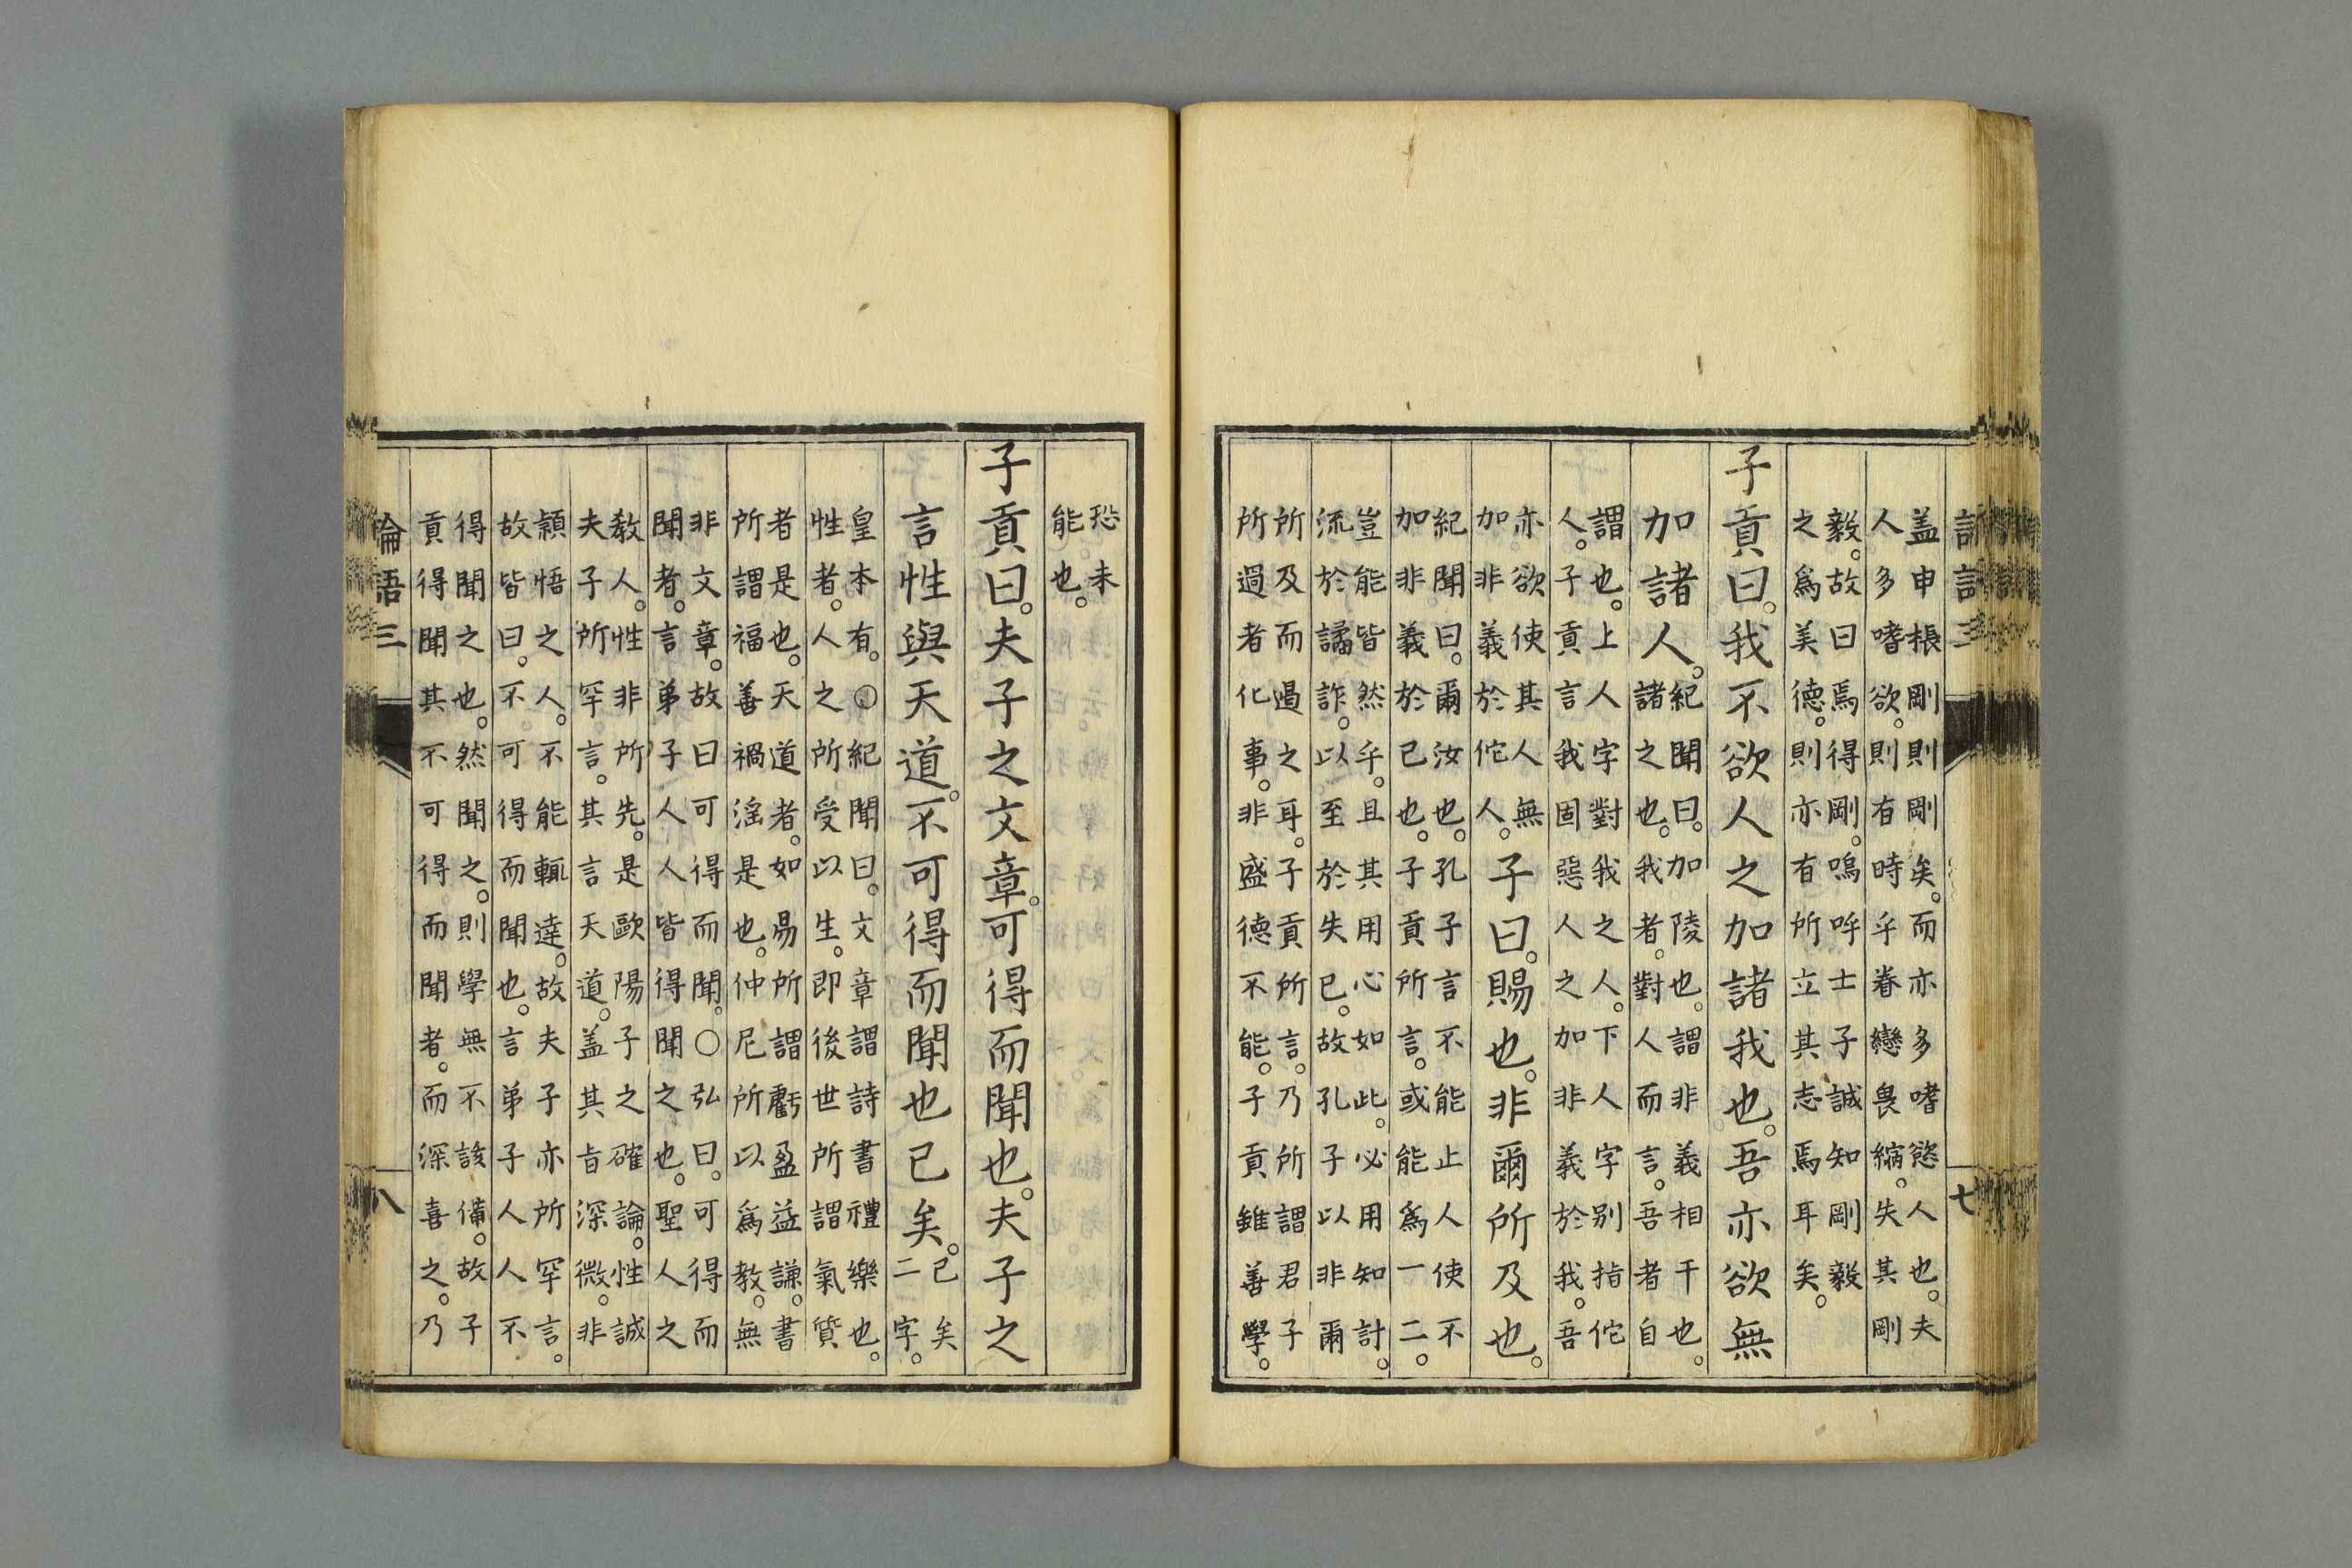 盖申棖剛則剛矣。而亦多嗜慾人也。夫
人多嗜欲。則有時乎眷戀畏縮。失其剛
毅。故曰焉得剛。嗚呼士子誠知剛毅
之爲美德。則亦有所立其志焉耳矣。
子貢曰。我不欲人之加諸我也。吾亦欲無
加諸人。
紀聞曰。加陵也。謂非義相干也。
諸之也。我者。對人而言。吾者自
謂也。上人字對我之人。下人字別指佗
人。子貢言我固惡人之加非義於我。吾
亦。欲使其人無
加非義於佗人。
子曰。賜也。非爾所及也。
紀聞曰。爾汝也。孔子言不能止人使不
加非義於己也。子貢所言。或能爲一二。
豈能皆然乎。且其用心如此。必用知計。
流於譎詐。以至於失已。故孔子以非爾
所及而過之耳。子貢所言。乃所謂君子
所過者化事。非盛德不能。子貢雖善學。
七
恐未
能也。
子貢曰。夫子之文章。可得而聞也。夫子之
言性與天道。不可得而聞也已矣。
已矣
二字。
皇本有。○紀聞曰。文章謂詩書禮樂也。
性者。人之所受以生。即後世所謂氣質
者是也。天道者。如易所謂虧盈益謙。書
所謂福善禍淫是也。仲尼所以爲教。無
非文章。故曰可得而聞。○弘曰。可得而
聞者。言弟子人人皆得聞之也。聖人之
敎人。性非所先。是歐陽子之確論。性誠
夫子所罕言。其言天道。盖其旨深微。非
穎悟之人。不能輒達。故夫子亦所罕言。
故皆曰。不可得而聞也。言弟子人人不
得聞之也。然聞之。則學無不該備。故子
貢得聞其不可得而聞者。而深喜之。乃
論語三
八